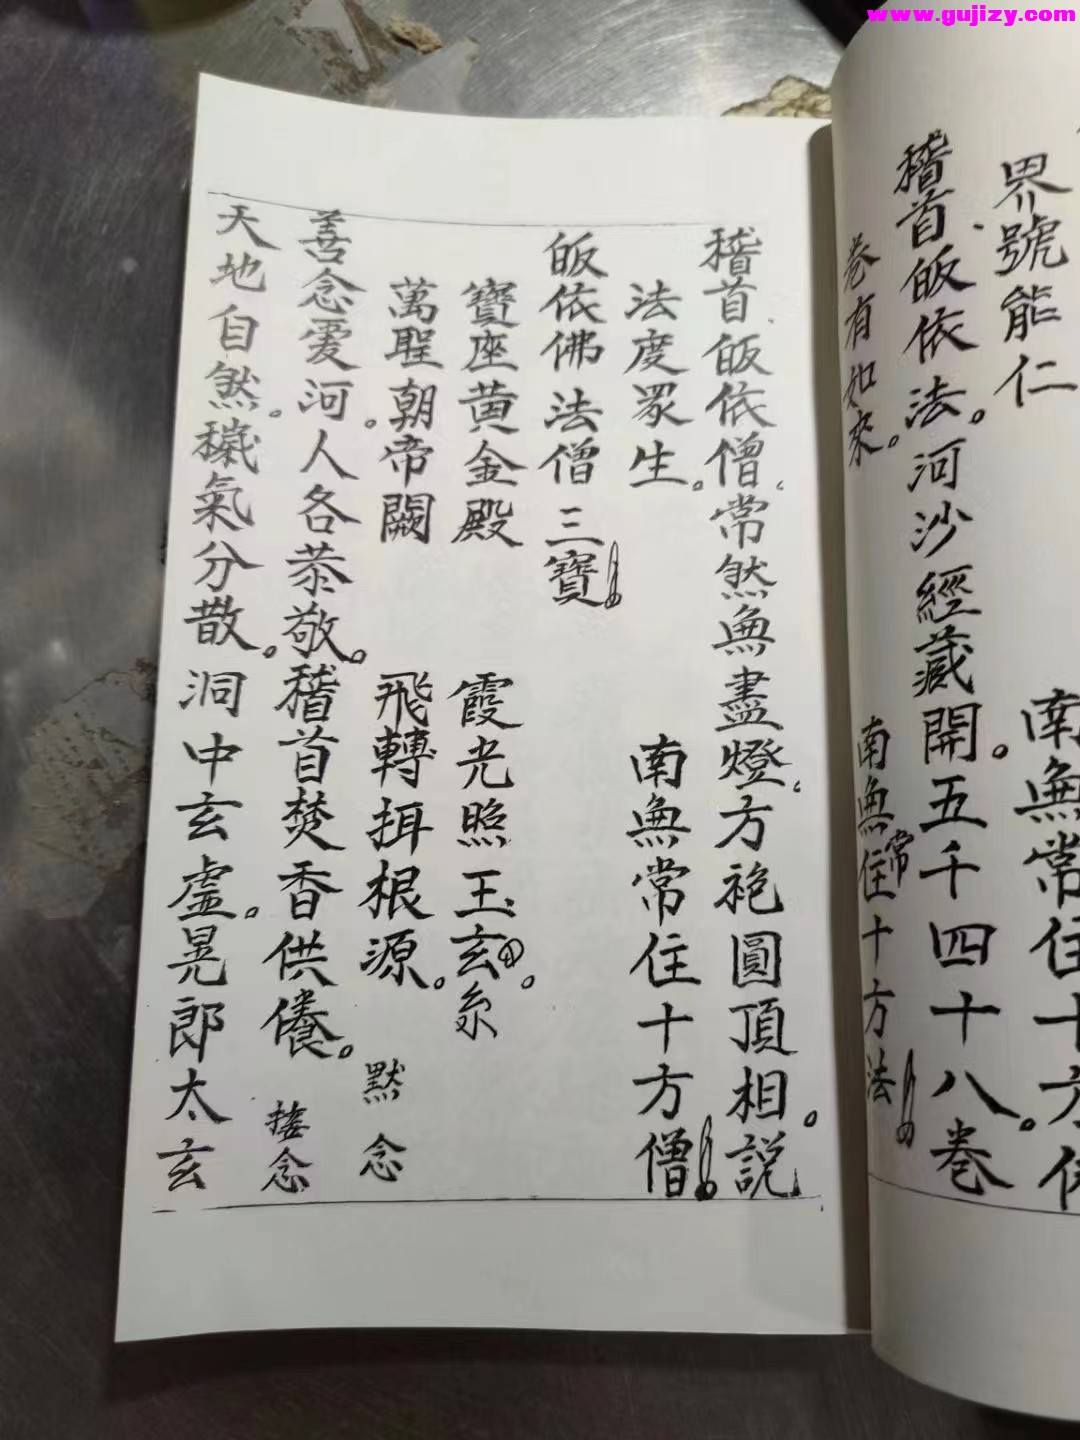 www.gujizy.com
界號能仁
南無常住十方佛
稽首皈依法。河沙經藏開。五千四十八卷。
卷有如來。
南無常住十方法
稽首皈依僧。常然無盡燈。方袍圓頂相。說
法度眾生。
南無常住十方僧
皈依佛法僧三寶
寶座黄金殿 霞光照玉玄。糸
萬聖朝帝闕 飛轉揖根源。 默念
善念爱河。人各恭敬。稽首焚香供養。 接念
天地自然。穢氣分散。洞中玄虛。晃郎太玄